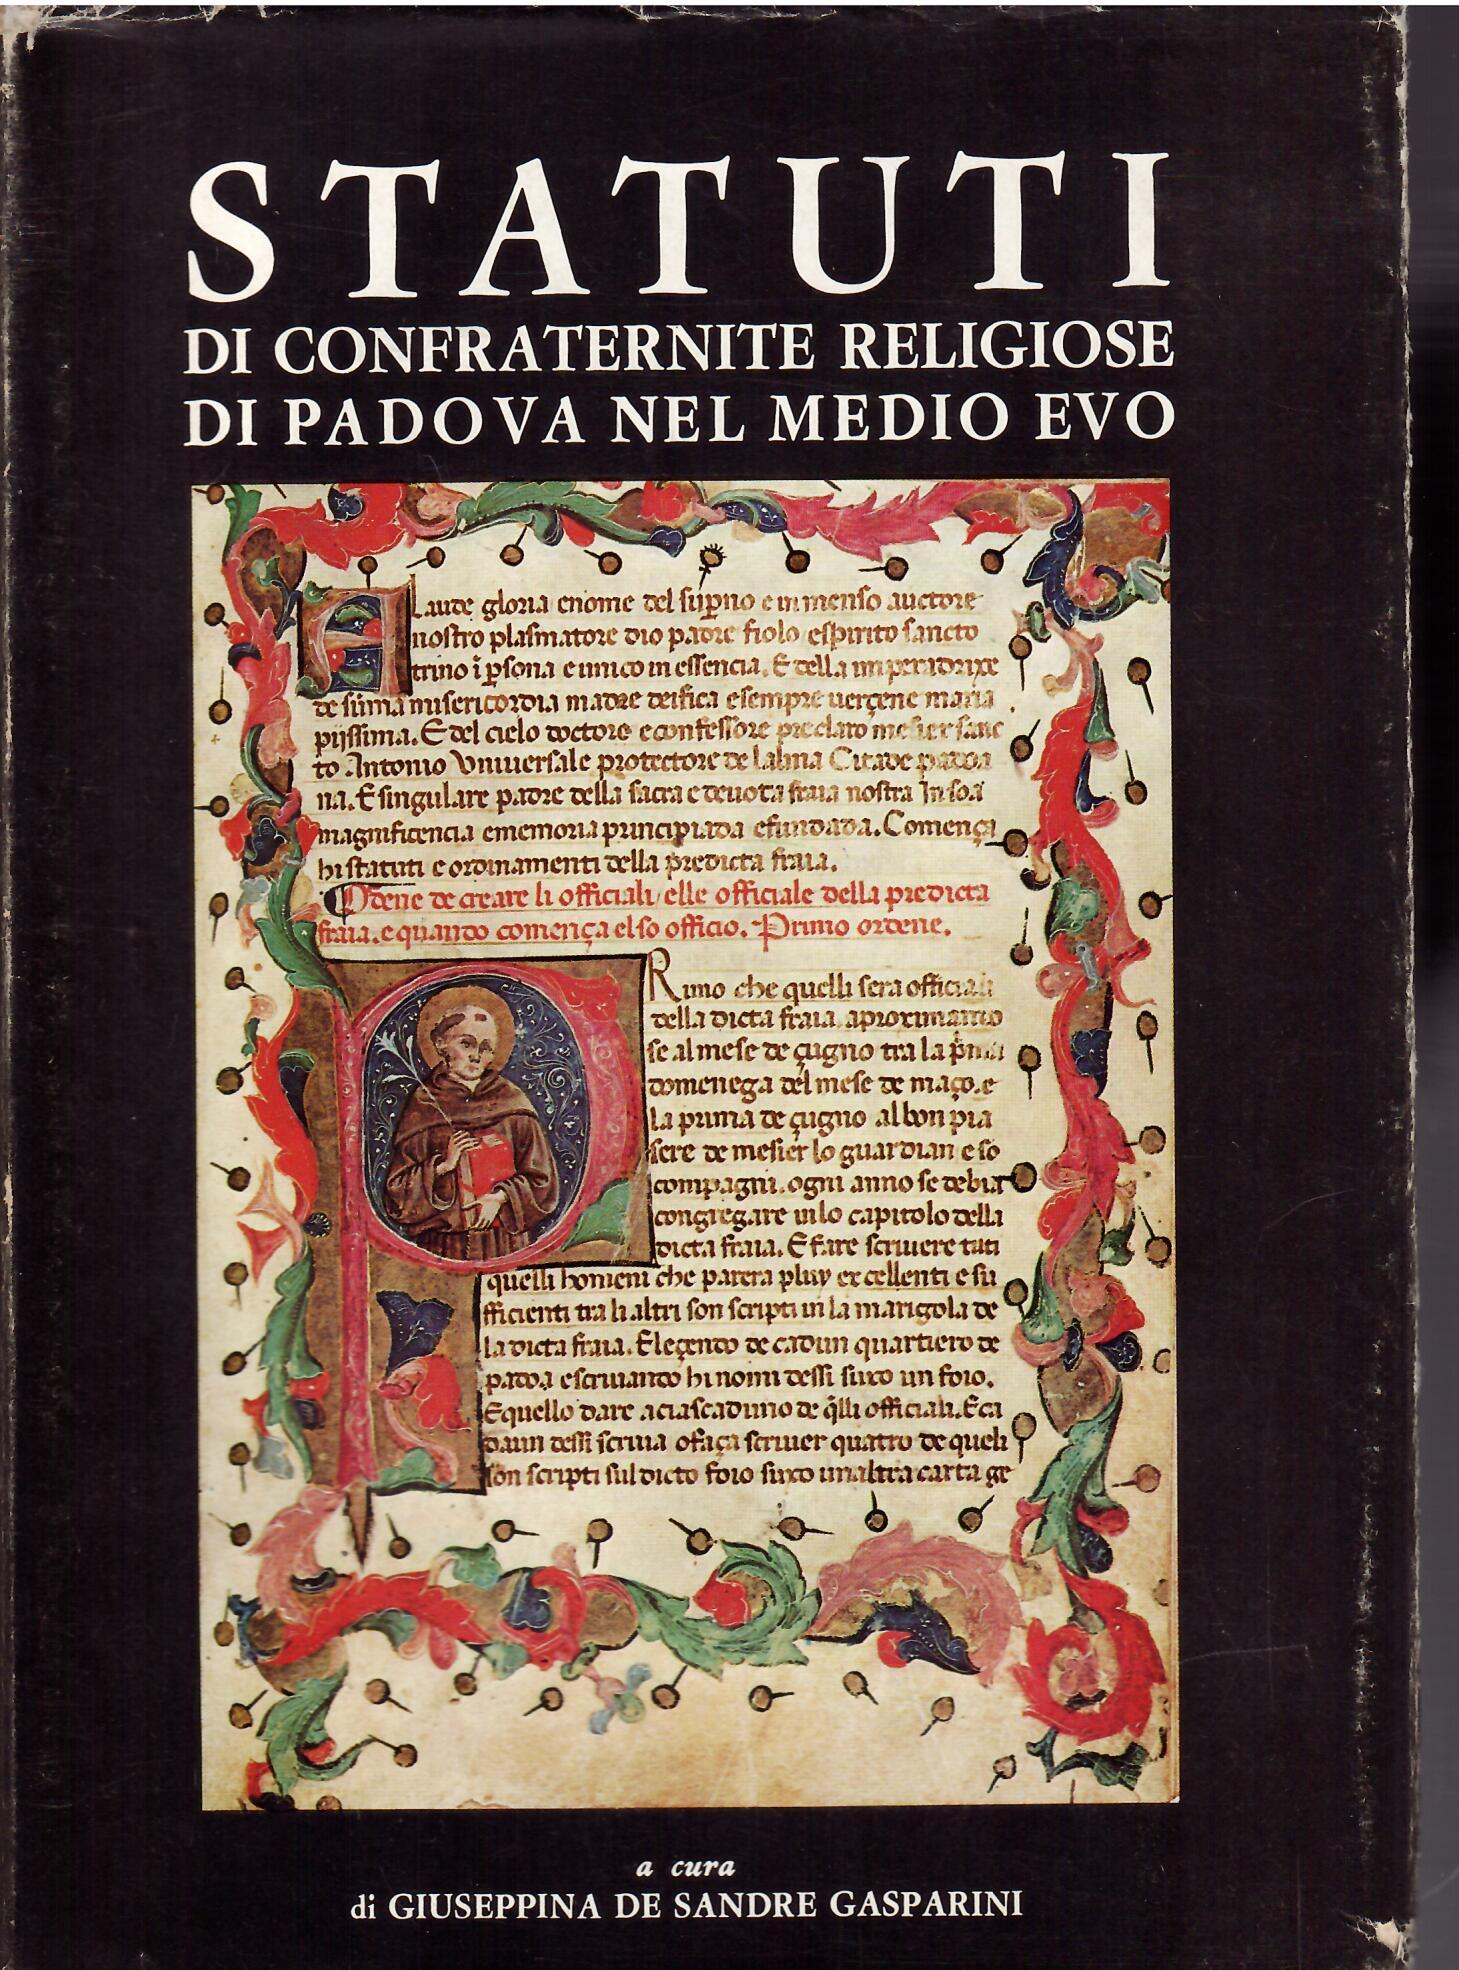 STATUTI
DI CONFRATERNITE RELIGIOSE
DI PADOVA NEL MEDIO EVO
A Laude gloria enome del sup̄no e inmenso auctore
nostro plasmatore dio padre fiolo espirito sancto
trino ī p̱sona e unico in essencia. E della imperadrixe
de sūma misericordia madre deifica esempre uergene maria
pijssima. E del cielo doctore econfessore preclaro mesier sanc
to Antonio Vniuersale protectore de lalma Citade padoa
na. E singulare padre della sacra e deuota fraia nostra In soa
magnificencia ememoria principiada efundada. Comença
hi statuti e ordinamenti della predicta fraia.
Odene de creare li officiali elle officiale della predicta
fraia. e quando comença el so officio. Primo ordene.
PRimo che quelli sera officiali
della dicta fraia. aproximanto
se al mese de çugno tra la p̄ma
domenega del mese de maço. e
la prima de çugno al bon pia
sere de mesier lo guardian e so
compagni. ogni anno se debia
congregare in lo capitolo della
dicta fraia. E fare scriuere tuti
quelli homeni che parera pluy excellenti e su
fficienti tra li altri son scripti in la marigola de
la dicta fraia. Eleçendo de cadun quartiero de
padoa escriuando hi nomi dessi suxo un foio.
E quello dare a ciascaduno de q̄lli officiali. E ca
daun dessi scriua ofaça scriuer quatro de queli
son scripti sul dicto foio suxo unaltra carta ge
a cura
di GIUSEPPINA DE SANDRE GASPARINI